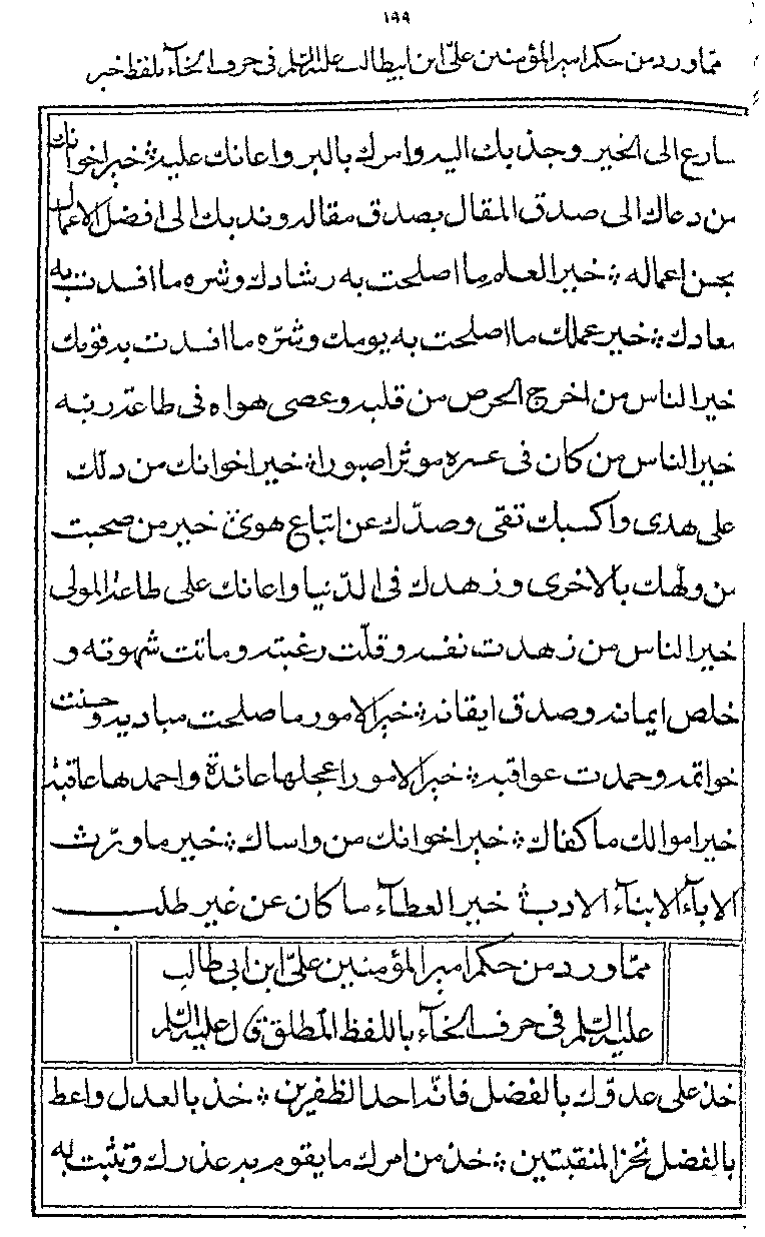 ١٩٩
ممّا ورد من حكم امير المؤمنين علىّ ابن ابيطالب عليه السّلم فى حرف الخآء بلفظ خير
سارع الى الخير وجذبك اليه وامرك بالبر واعانك عليه ؞ خير اخوانك
من دعاك الى صدق المقال بصدق مقاله وندبك الى افضل الاعمال
بحسن اعماله ؞ خير العلم ما اصلحت به رشادك وشره ما افسدت به
معادك ؞ خير عملك ما اصلحت به يومك وشرّه ما افسدت به قومك
خير الناس من اخرج الحرص من قلبه وعصى هواه فى طاعة ربّه
خير الناس من كان فى عسره موثرا صبورا ؞ خير اخوانك من دلّك
على هدى واكسبك تقى وصدّك عن اتباع هوى ؞ خير من صحبت
من ولّهك بالاخرى وزهدك فى الدّنيا واعانك على طاعة المولى
خير الناس من زهدت نفسه وقلّت رغبته وماتت شهوته و
خلص ايمانه وصدق ايقانه ؞ خير الامور ما صلحت مباديه وحسنت
خواتمه وحمدت عواقبه ؞ خير الامور اعجلها عائدة واحمدها عاقبة
خير اموالك ما كفاك ؞ خير اخوانك من واساك ؞ خير ما ورّث
الابآء الابنآء الادب ؞ خير العطآء ما كان عن غير طلب
ممّا ورد من حكم امير المؤمنين علىّ ابن ابى طالب
عليه السّلم فى حرف الخآء باللفظ المطلق قال عليه السّلم
خذ على عدوّك بالفضل فانّه احد الظفرين ؞ خذ بالعدل واعط
بالفضل تحز المنقبتين ؞ خذ من امرك ما يقوم به عذرك وتثبت به